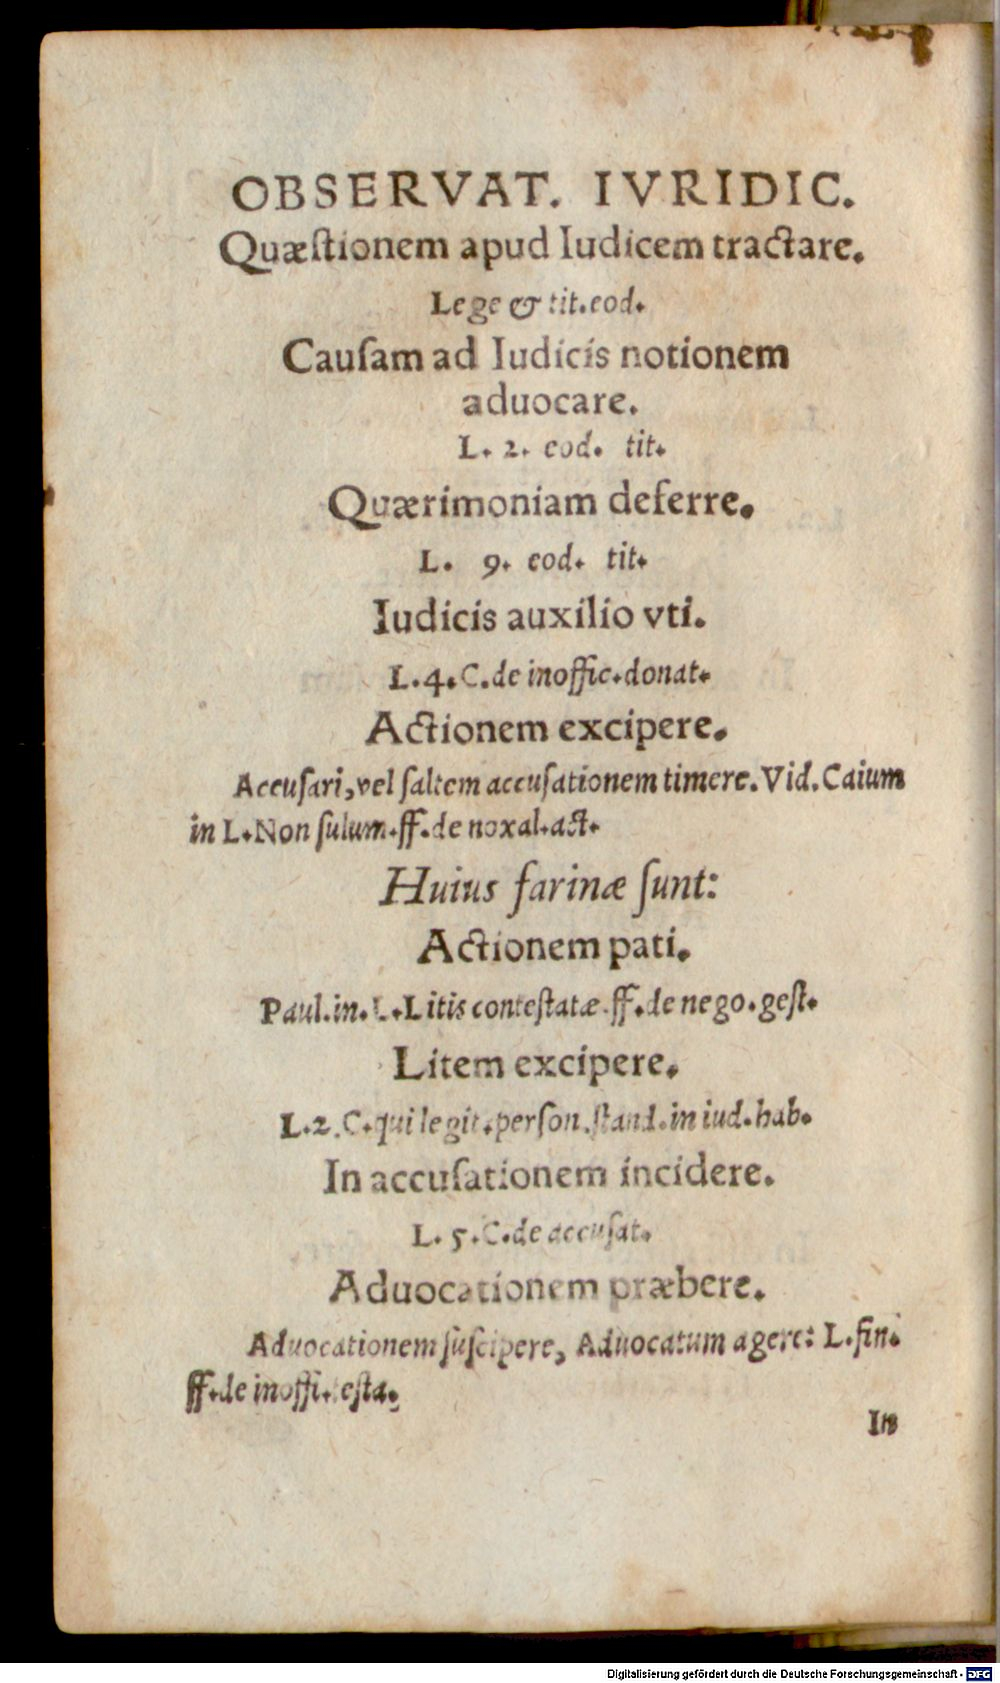 OBSERVAT. IVRIDIC.
Quæſtionem apud Iudicem tractare.
Lege & tit. eod.
Cauſam ad Iudicis notionem
aduocare.
L. 2. eod. tit.
Quærimoniam deferre.
L. 9. eod. tit.
Iudicis auxilio vti.
L. 4. C. de inoffic. donat.
Actionem excipere.
Accuſari, vel ſaltem accuſationem timere. Vid. Caium
in L. Non ſulum. ff. de noxal. act.
Huius farinæ ſunt:
Actionem pati.
Paul. in. L. Litis conteſtatæ. ff. de nego. geſt.
Litem excipere.
L. 2. C. qui legit. perſon. ſtand. in iud. hab.
In accuſationem incidere.
L. 5. C. de accuſat.
Aduocationem præbere.
Aduocationem ſuſcipere, Aduocatum agere: L. fin.
ff. de inoffi. teſta.
In
Digitalisierung gefördert durch die Deutsche Forschungsgemeinschaft - DFG